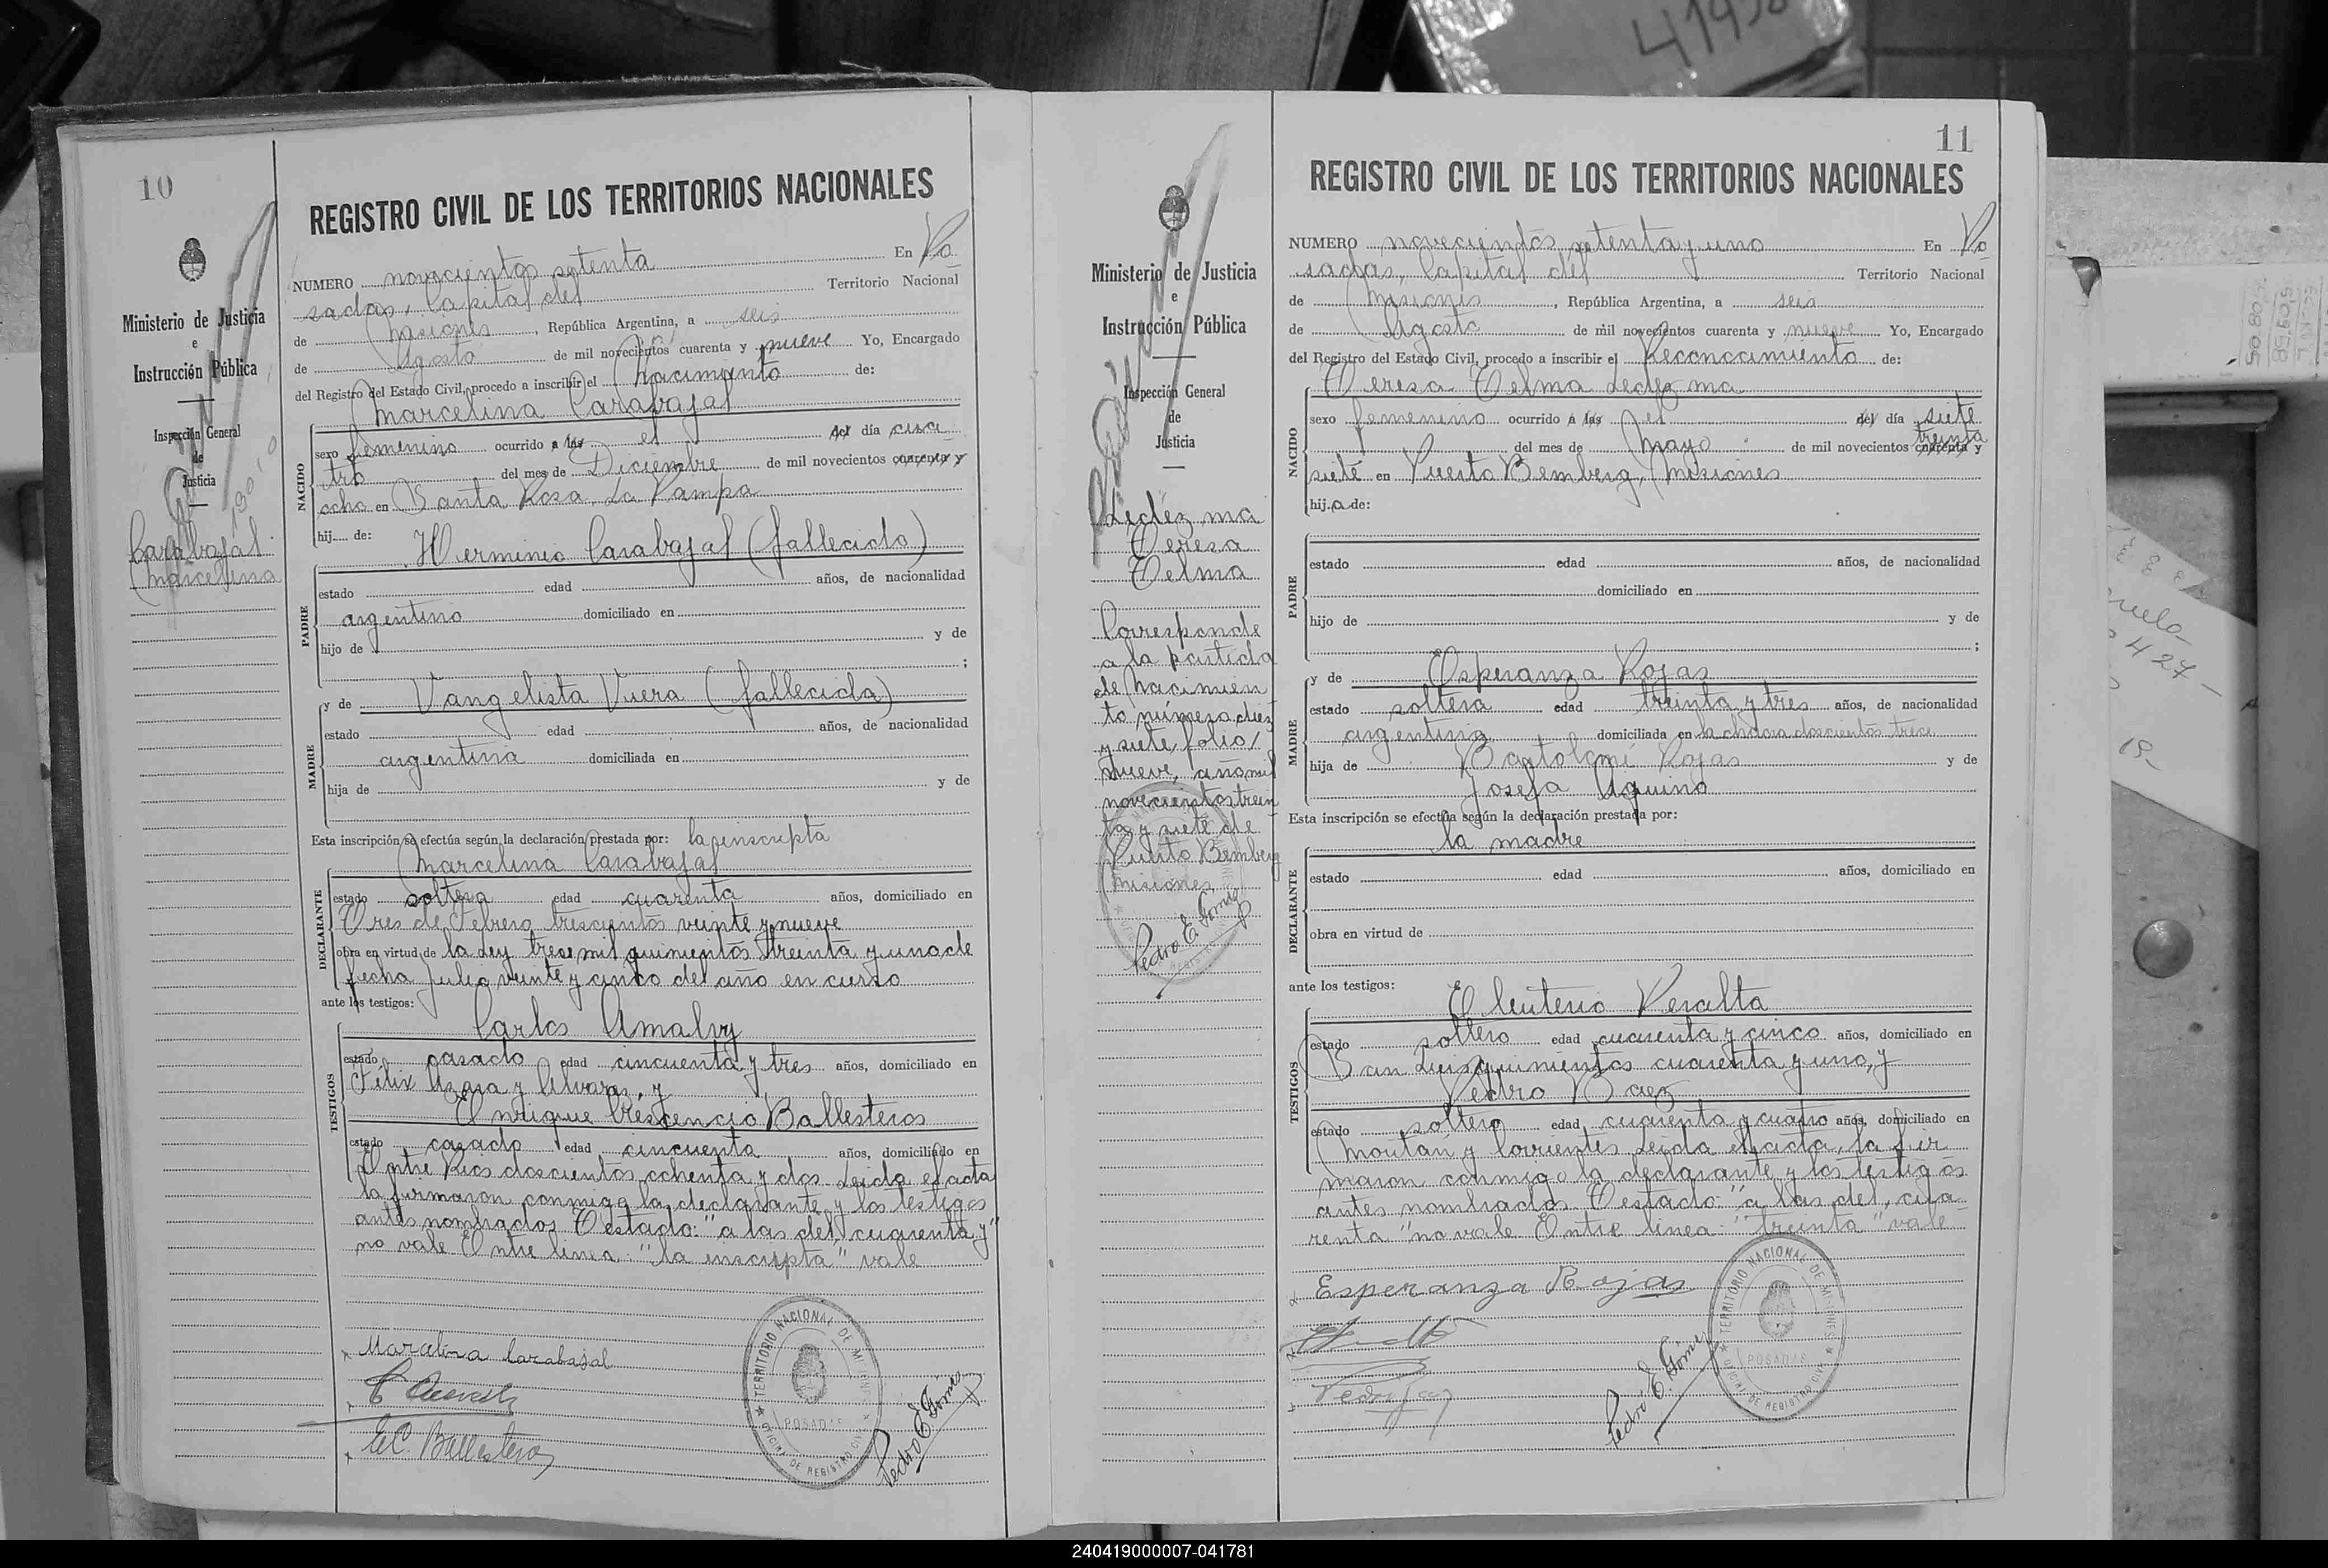 41458
10
REGISTRO CIVIL DE LOS TERRITORIOS NACIONALES
Ministerio de Justicia
e
Instrucción Pública
Inspección General
de
Justicia
Carabajal
Marcelina
NUMERO novecientos setenta En Po
sadas, Capital del Territorio Nacional
de Misiones, República Argentina, a seis
de Agosto de mil novecientos cuarenta y nueve Yo, Encargado
del Registro del Estado Civil, procedo a inscribir el Nacimiento de:
Marcelina Carabajal
NACIDO
sexo femenino ocurrido a las el del día cua
tro del mes de Diciembre de mil novecientos cuarenta y
ocho en Santa Rosa, La Pampa
hij.... de:
PADRE
Herminio Carabajal (fallecido)
estado edad años, de nacionalidad
argentino domiciliado en
hijo de y de
;
MADRE
y de Vangelista Viera (fallecida)
estado edad años, de nacionalidad
argentina domiciliada en
hija de y de
Esta inscripción se efectúa según la declaración prestada por: la inscripta
Marcelina Carabajal
DECLARANTE
estado soltera edad cuarenta años, domiciliado en
Tres de Febrero trescientos veinte y nueve
obra en virtud de la Ley trece mil quinientos treinta y uno de
fecha Julio veinte y cinco del año en curso
ante los testigos:
TESTIGOS
Carlos Amalvy
estado casado edad cincuenta y tres años, domiciliado en
Félix Azara y Alvarez, y
Enrique Crescencio Ballesteros
estado casado edad cincuenta años, domiciliado en
Entre Rios doscientos ochenta y dos. Leida el acta
la firmaron conmigo la declarante y los testigos
antes nombrados. Testado: "a las del, cuarenta y"
no vale Entre linea: "la inscripta" vale
Marcelina Carabajal
E.C. Ballesteros
Pedro E. Gómez
TERRITORIO NACIONAL DE MISIONES
POSADAS
OFICINA DE REGISTRO CIVIL
11
REGISTRO CIVIL DE LOS TERRITORIOS NACIONALES
Ministerio de Justicia
e
Instrucción Pública
Inspección General
de
Justicia
Ledezma
Teresa
Telma
Corresponde
a la partida
de Nacimien
to número diez
y siete, folio
nueve, año mil
novecientos trein
ta y siete de
Puerto Bemberg
Misiones
Pedro E. Gómez
NUMERO novecientos setenta y uno En Po
sadas, Capital del Territorio Nacional
de Misiones, República Argentina, a seis
de Agosto de mil novecientos cuarenta y nueve Yo, Encargado
del Registro del Estado Civil, procedo a inscribir el Reconocimiento de:
Teresa Telma Ledezma
NACIDO
sexo femenino ocurrido a las el del día siete
treinta
del mes de Mayo de mil novecientos cuarenta y
siete en Puerto Bemberg, Misiones
hija de:
PADRE
estado edad años, de nacionalidad
domiciliado en
hijo de y de
;
MADRE
y de Esperanza Rojas
estado soltera edad treinta y tres años, de nacionalidad
argentina domiciliada en la chacra doscientos trece
hija de Bartolomé Rojas y de
Josefa Aquino
Esta inscripción se efectúa según la declaración prestada por:
la madre
DECLARANTE
estado edad años, domiciliado en
obra en virtud de
ante los testigos:
TESTIGOS
Eleuterio Peralta
estado soltero edad cuarenta y cinco años, domiciliado en
San Luis quinientos cuarenta y uno, y
Pedro Baez
estado soltero edad cuarenta y cuatro años, domiciliado en
Moután y Corrientes Leida el acta, la fir
maron conmigo la declarante y los testigos
antes nombrados. Testado: "a las del, cua
renta" no vale Entre linea: "treinta" vale
Esperanza Rojas
Pedro E. Gómez
TERRITORIO NACIONAL DE MISIONES
POSADAS
OFICINA DE REGISTRO CIVIL
240419000007-041781